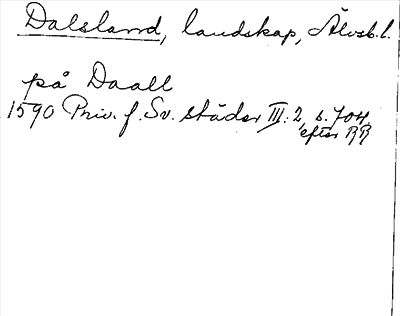 Dalsland, landskap, Älvsb. l.
på Daall
1590 Priv. f. Sv. städer III: 2, s. 704,
efter RR